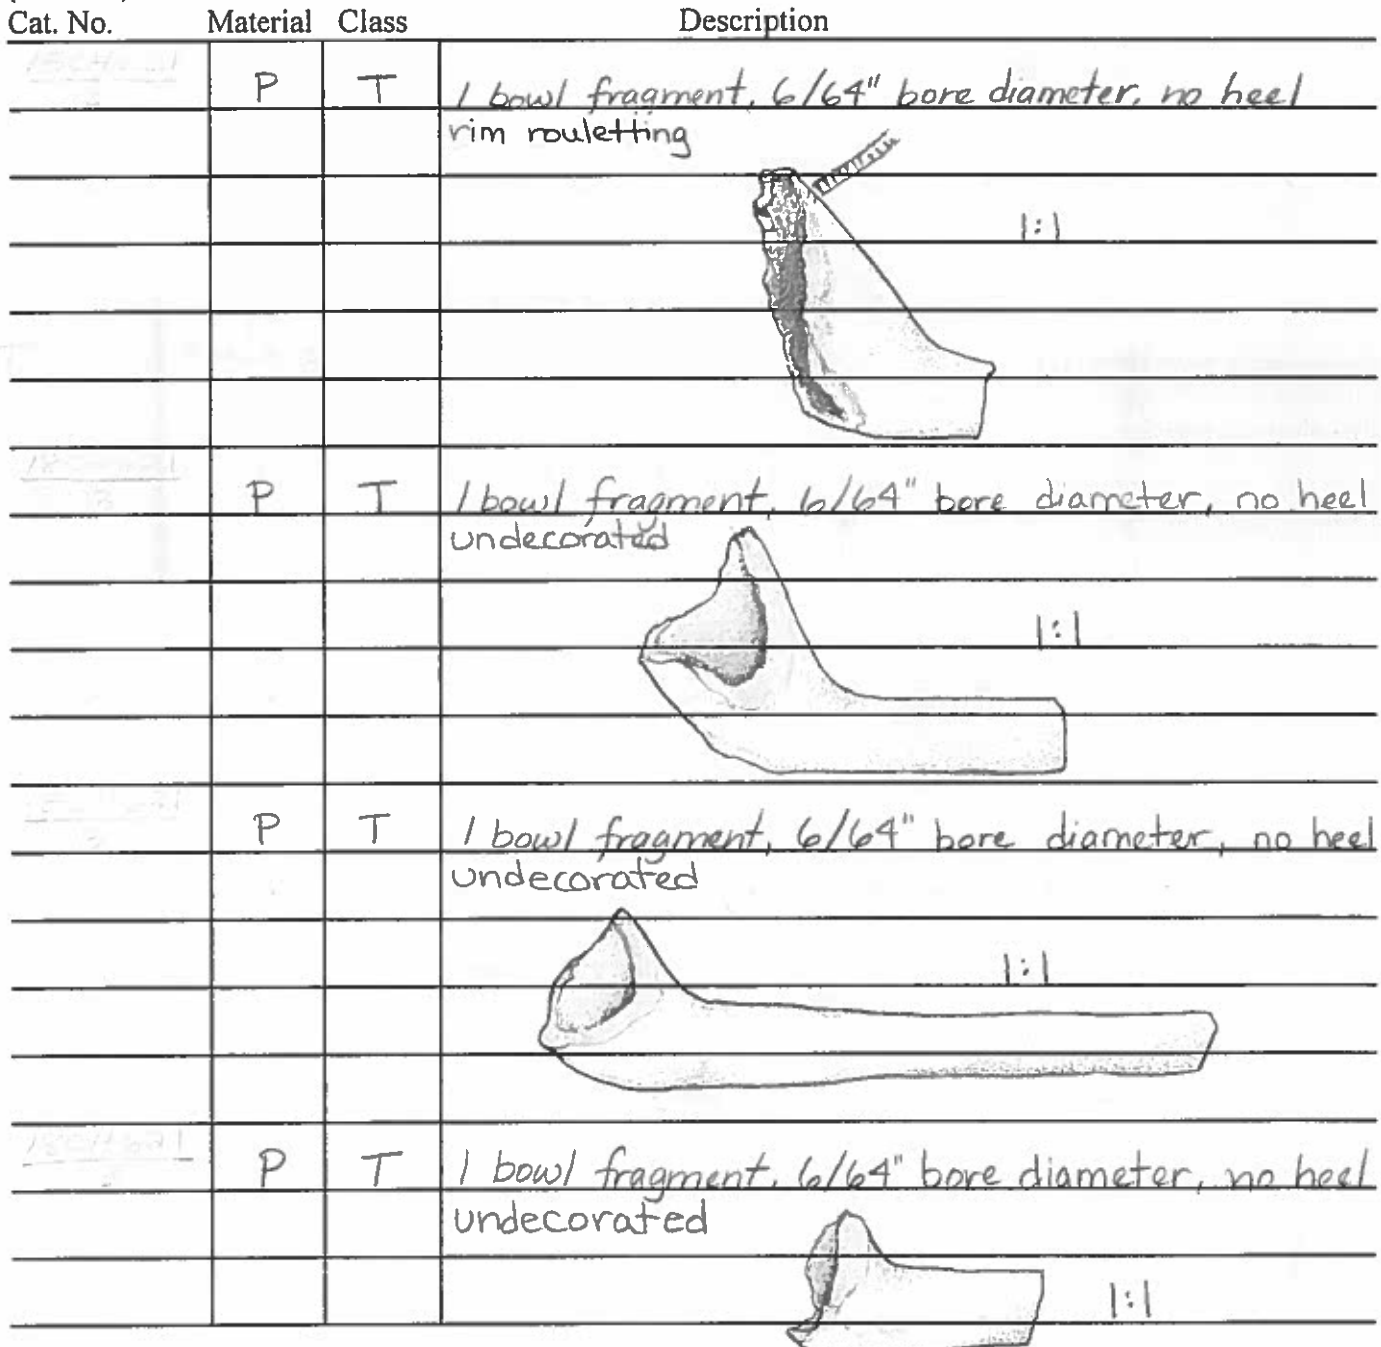 Cat. No. Material Class Description
P T 1 bowl fragment, 6/64" bore diameter, no heel
rim rouletting
1:1
P T 1 bowl fragment, 6/64" bore diameter, no heel
undecorated
1:1
P T 1 bowl fragment, 6/64" bore diameter, no heel
undecorated
1:1
P T 1 bowl fragment, 6/64" bore diameter, no heel
undecorated
1:1